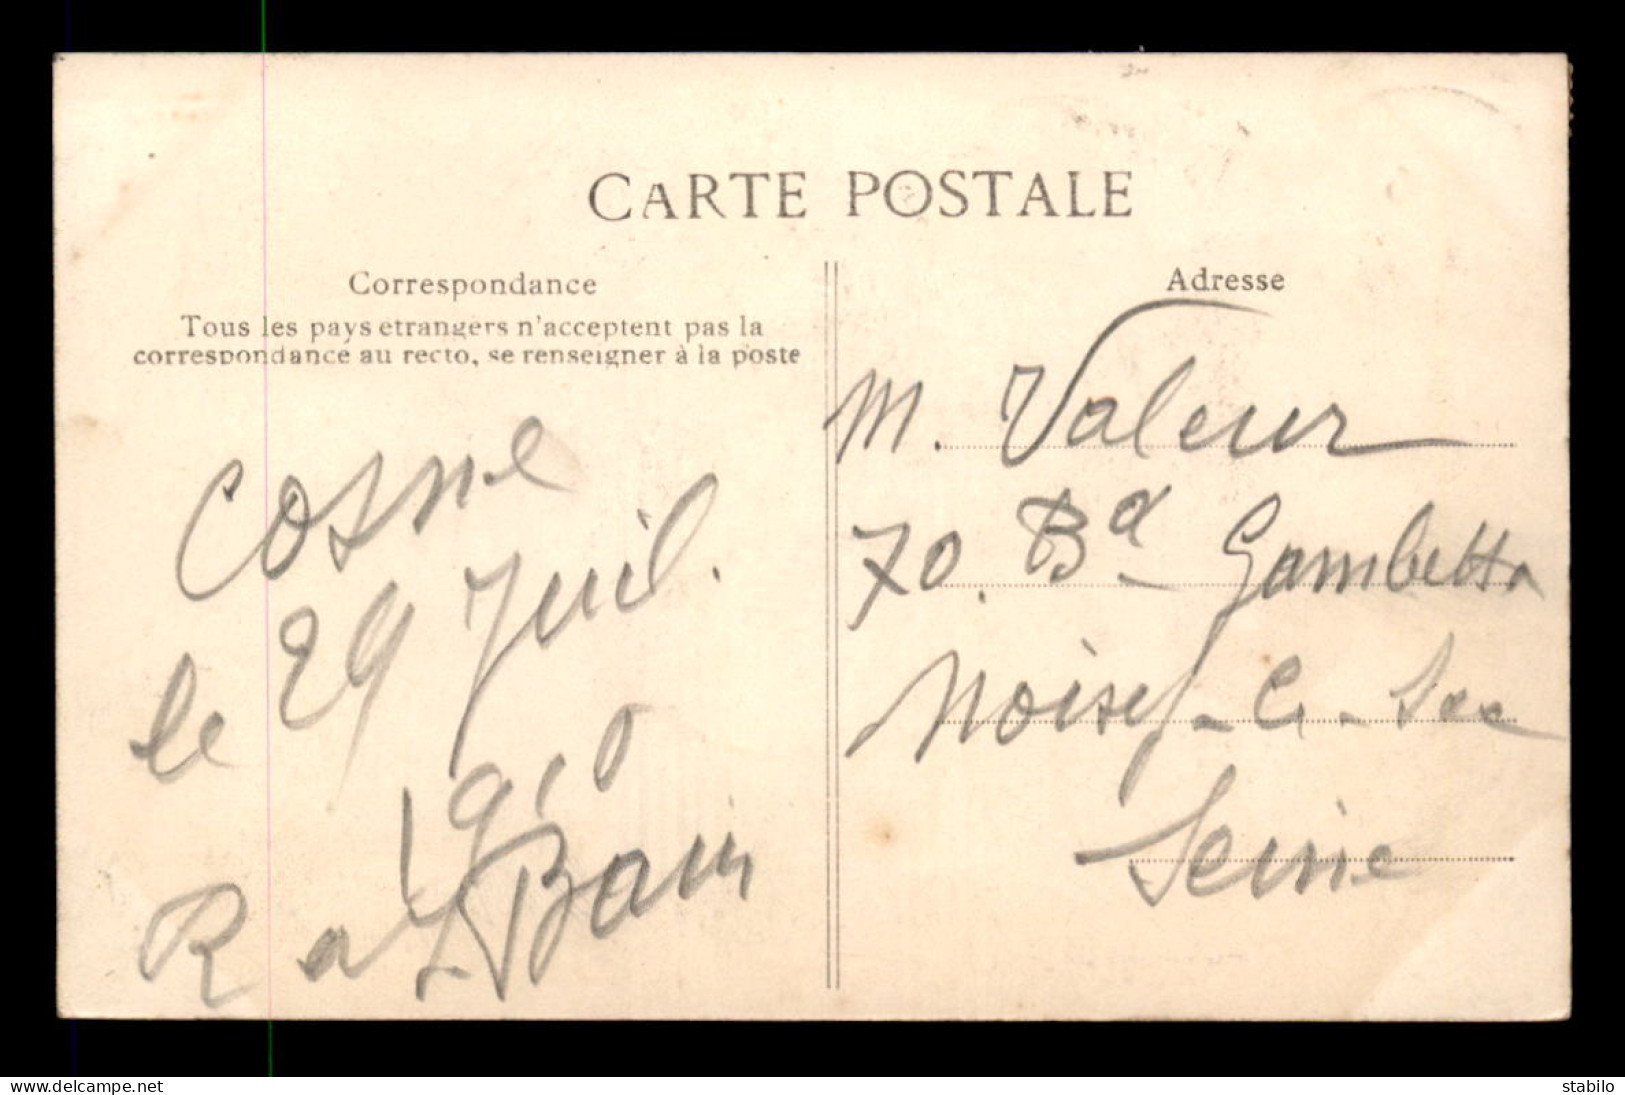 CARTE POSTALE
Correspondance
Tous les pays etrangers n'acceptent pas la
correspondance au recto, se renseigner à la poste
Cosne
le 29 Juil.
1910
Adresse
M. Valeur
70. Bd Gambetta
Noisy-le-Sec
Seine
www.delcampe.net
stabilo